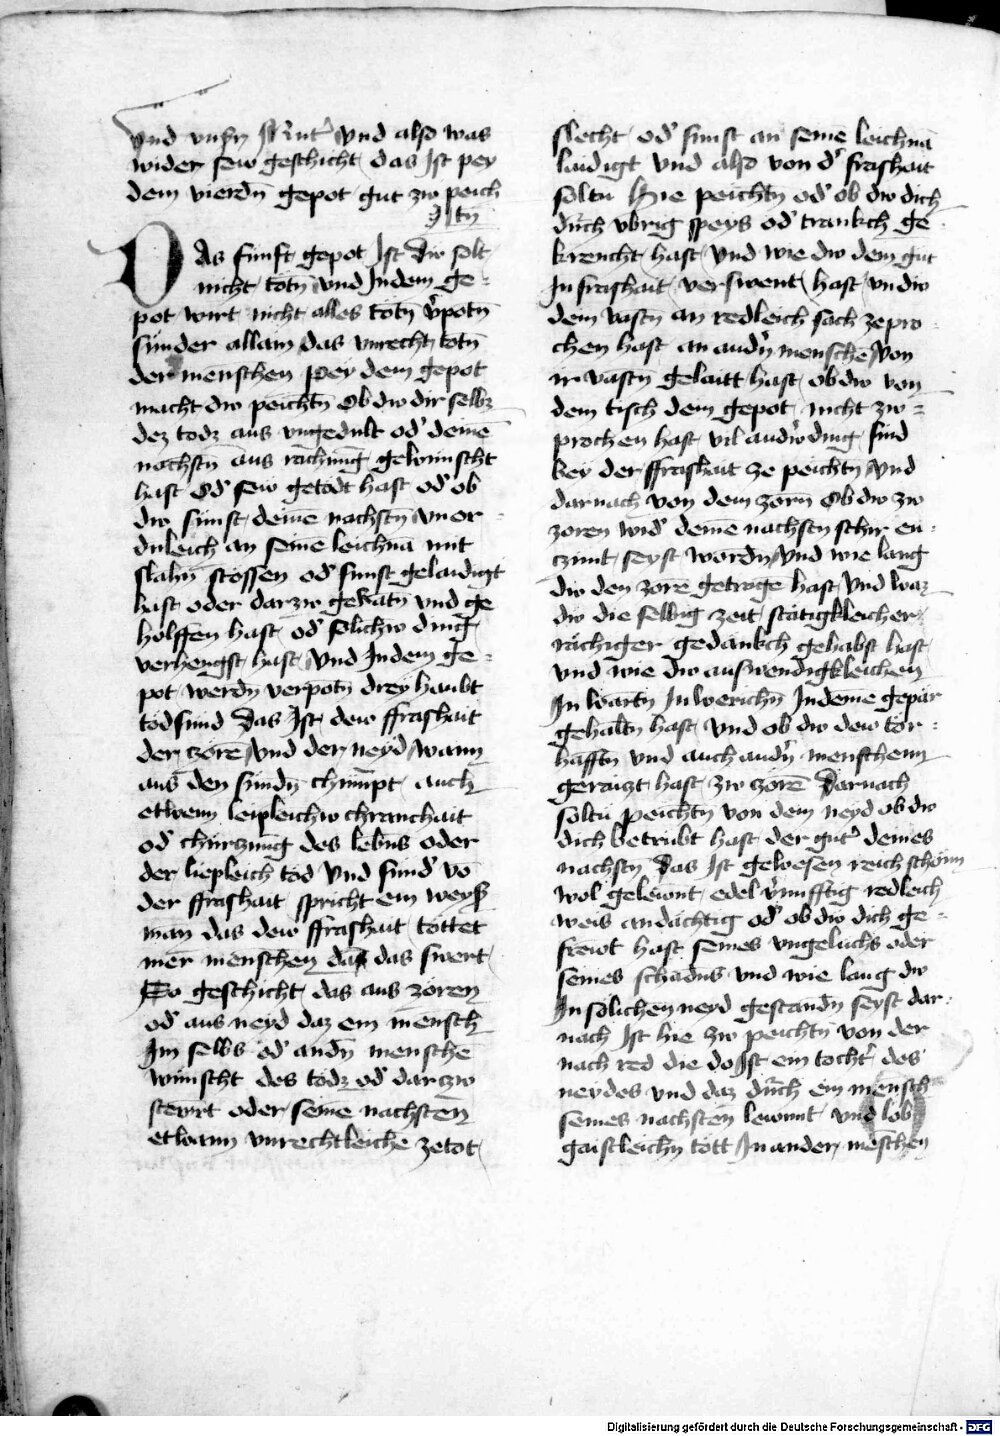 vnd vnser vnd also was
wider sew geschicht das Ist pey
dem vierdn̄ gepot gut zw peich
tn̄
DAs funft gepot Ist Dw solt
nicht totn̄ vnd Indem ge-
pot wirt nicht alles totn̄ v̓potn̄
sunder allain das vnrecht totn̄
der menschen pey dem gepot
macht dw peichtn̄ Ob dw dir selbz
dez todz aus vngedult od̓ deinē
nachstn̄ aus rachūg gewunscht
hast Od̓ sew getodt hast od̓ ob
dw sunst deinē nachstn̄ vnor-
dnleich an seinē leichnā mit
slahn̄ stossen od̓ sunst gelaidigt
hast oder darzw geratn̄ vnd ge
holffen hast od̓ solichw ding
verhengst hast vnd Indem ge-
pot werdn̄ verpotn̄ drey haubt
todsund Das Ist dew ffrashait
der zorē vnd der neyd wann
aus den sundn̄ chūmpt auch
etwem leipleichw chranchait
od̓ churczūg des lebns oder
der liepleich tod vnd sund̓ vō
der ffrashait spricht ein weyß
man das dew ffrashait tottet
mer menschen dan das swert
So geschicht das aus zoren
od̓ aus neyd daz ein mensch
Im selbs od̓ andn̄ mensche
wunscht des todz od̓ darczw
stewrt oder seine nachsten
etwann vnrechtleiche zetot
slecht od̓ sunst an seinē leichnā
laidigt vnd also von d̓ frashait
soltu hie peichtn̄ od̓ ob dw dich
durch vbrig speys od̓ trankch ge-
krencht hast vnd wie dw dem gut
In frashait verswent hast vn dw
dem vastn̄ an redleich sach zepro-
chen hast an andn̄ menschē von
ir vastn̄ gelaitt hast ob dw von
dem tisch dem gepot nicht zw-
prochen hast vil andw ding sind
bey der ffrashait ze peichtn̄ vnd
darnach von dem zorn̄ Ob dw zw
zoren wid̓ deinē nachsten schir en-
czunt seyst wordn̄ vnd wie lang
dw den zorē getragē hast vnd waz
dw die selbig zeit statigkleicher
rachiger gedankch gehabt hast
vnd wie dw auswendigkleichen
In wartn̄ In werichn̄ In deine gepar
gehaltn̄ hast vnd ob dw dew tor-
hafftn̄ vnd auch andn̄ menschenn
geraizt hast zw zorē Darnach
soltu peichtn̄ von dem neyd ob dw
dich betrubt hast der gut̓ deines
nachstn̄ Das Ist gewesen reich schonn
wol gelewnt edel v̓nunfftig redleich
weis andachtig od̓ ob dw dich ge-
frewt hast seines vngeluchs oder
seines schadns vnd wie lang dw
In solichen neyd gestandn̄ seyst dar-
nach Ist hie zw peichtn̄ von der
nach red die do Ist ein tocht̓ des
neydes vnd daz durch ein mensch
seines nachsten lewnt vnd lob
gaistleichn̄ tott In ander meschen